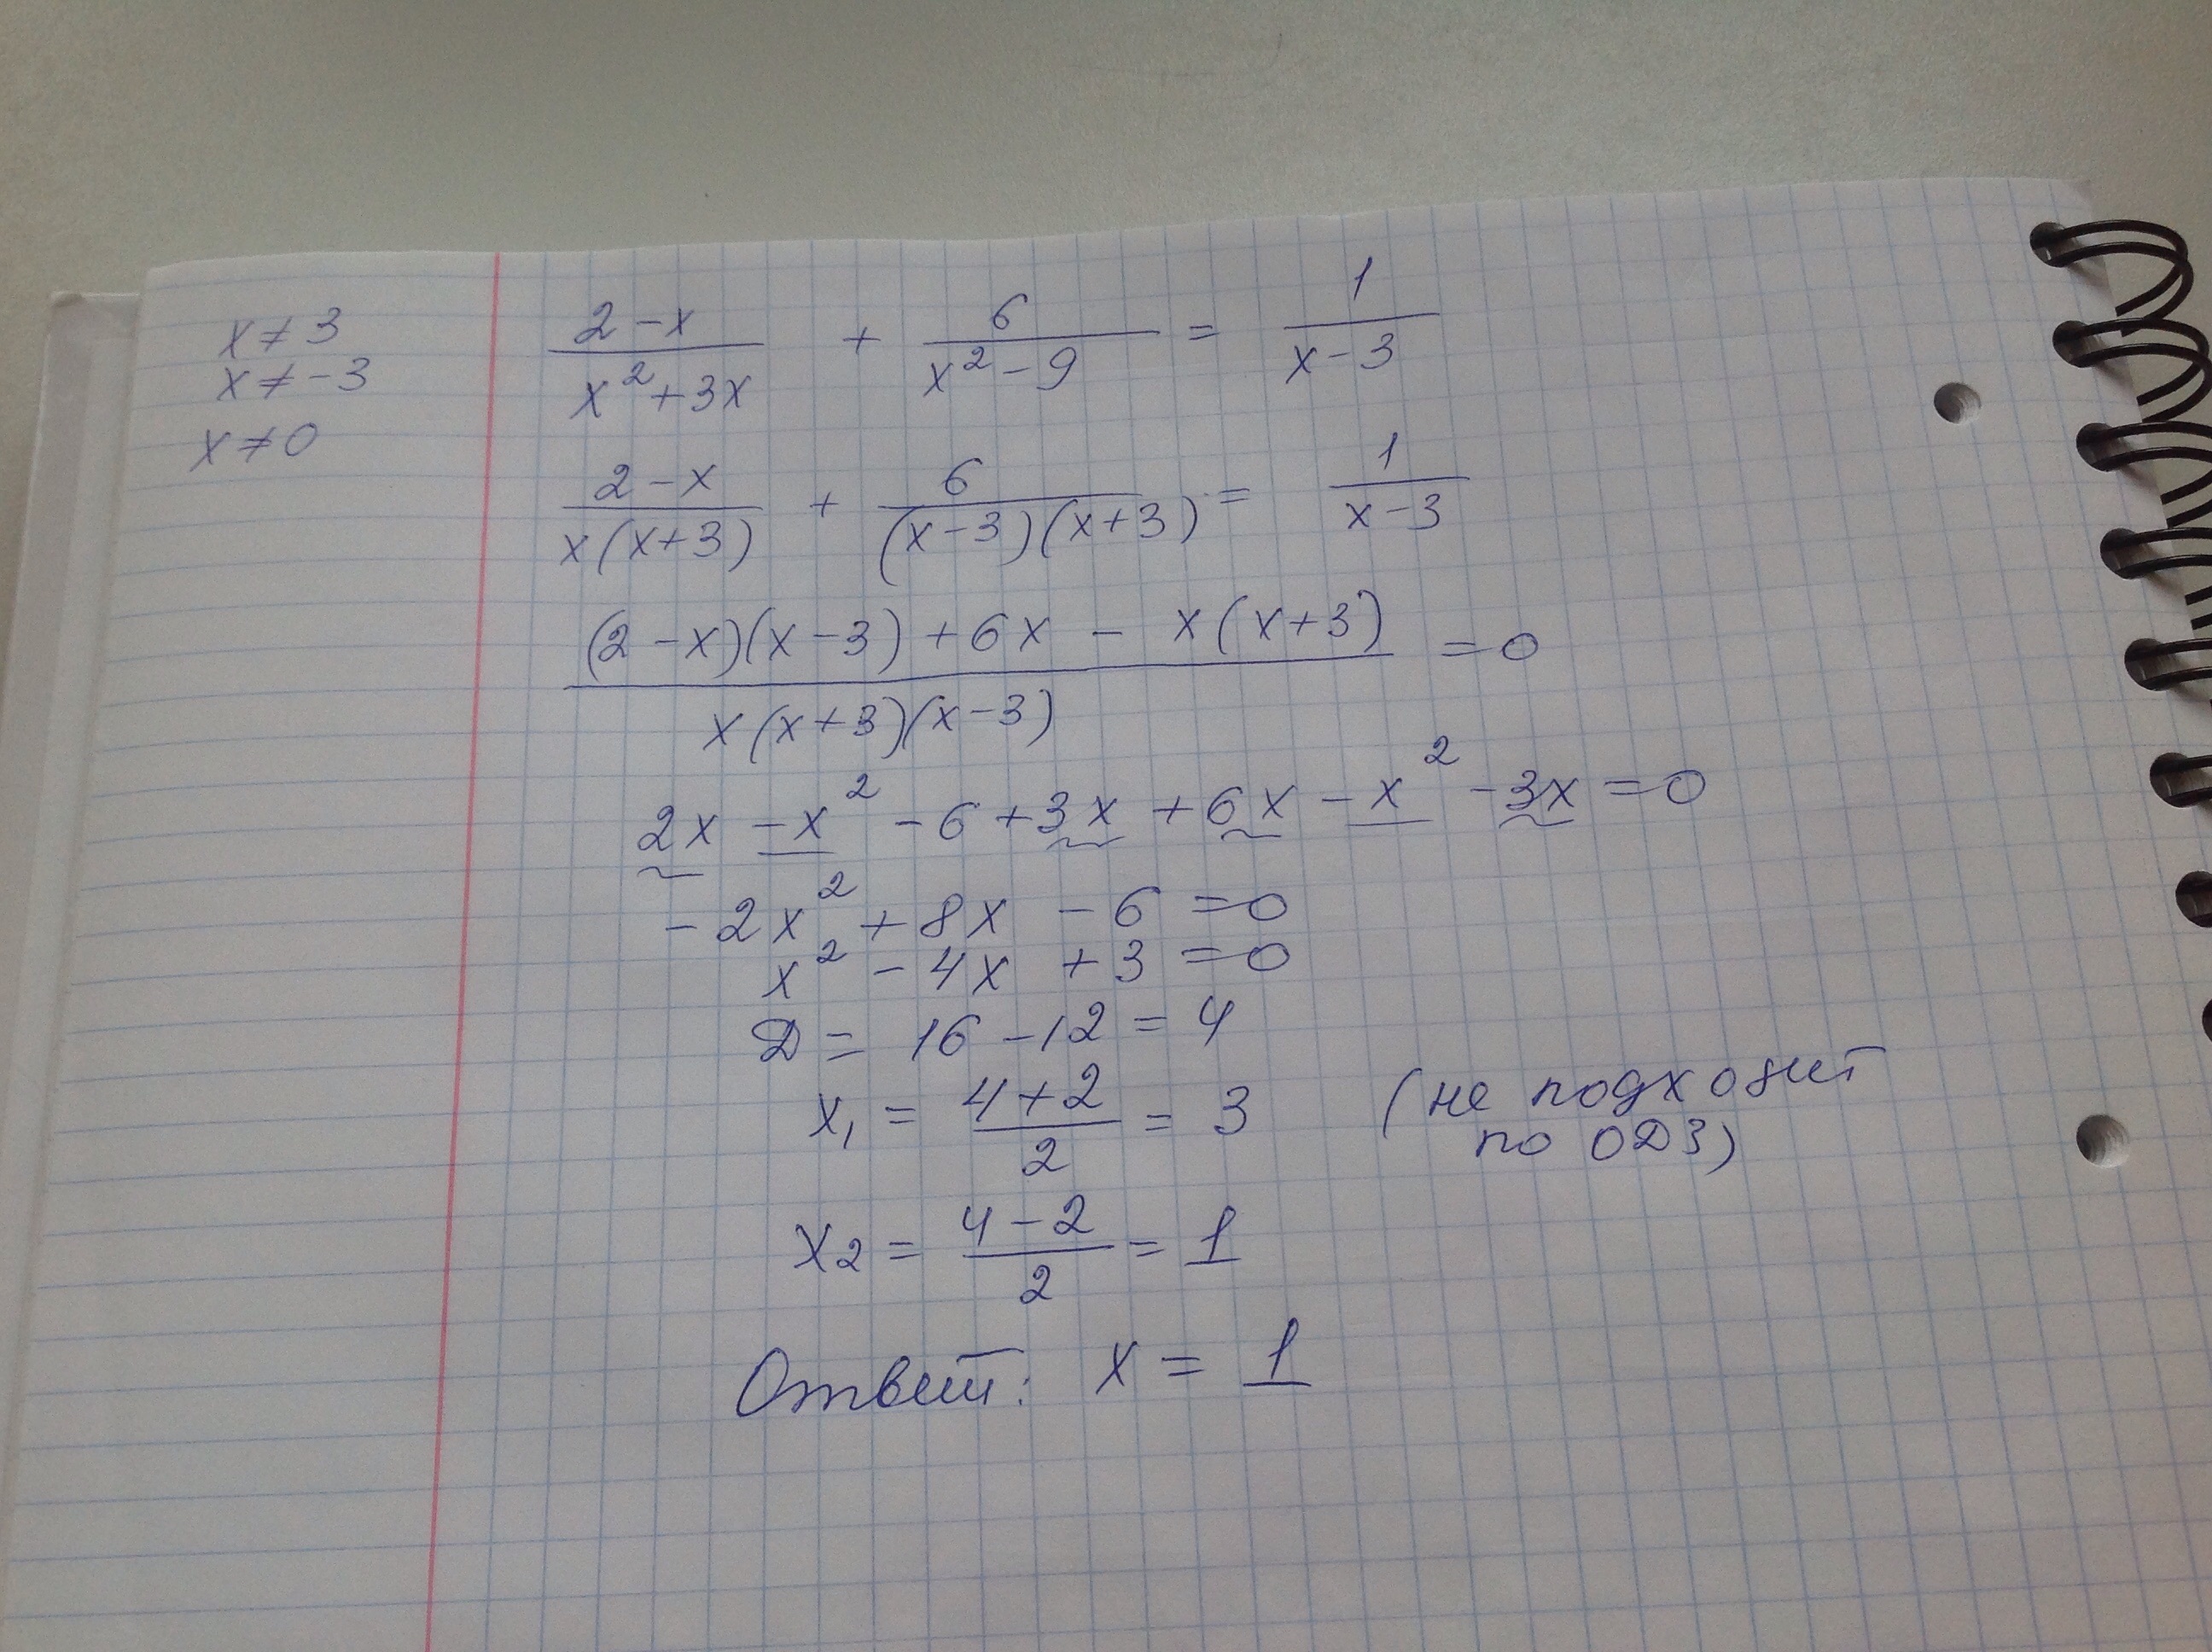 x ≠ 3
x ≠ -3
x ≠ 0
(2-x)/(x²+3x) + 6/(x²-9) = 1/(x-3)
(2-x)/(x(x+3)) + 6/((x-3)(x+3)) = 1/(x-3)
((2-x)(x-3)+6x - x(x+3))/(x(x+3)(x-3)) = 0
2x -x² -6 +3x +6x -x² -3x = 0
-2x² + 8x - 6 = 0
x² - 4x + 3 = 0
D = 16 - 12 = 4
x₁ = (4+2)/2 = 3 (не подходит
по ОДЗ)
x₂ = (4-2)/2 = 1
Ответ: x = 1